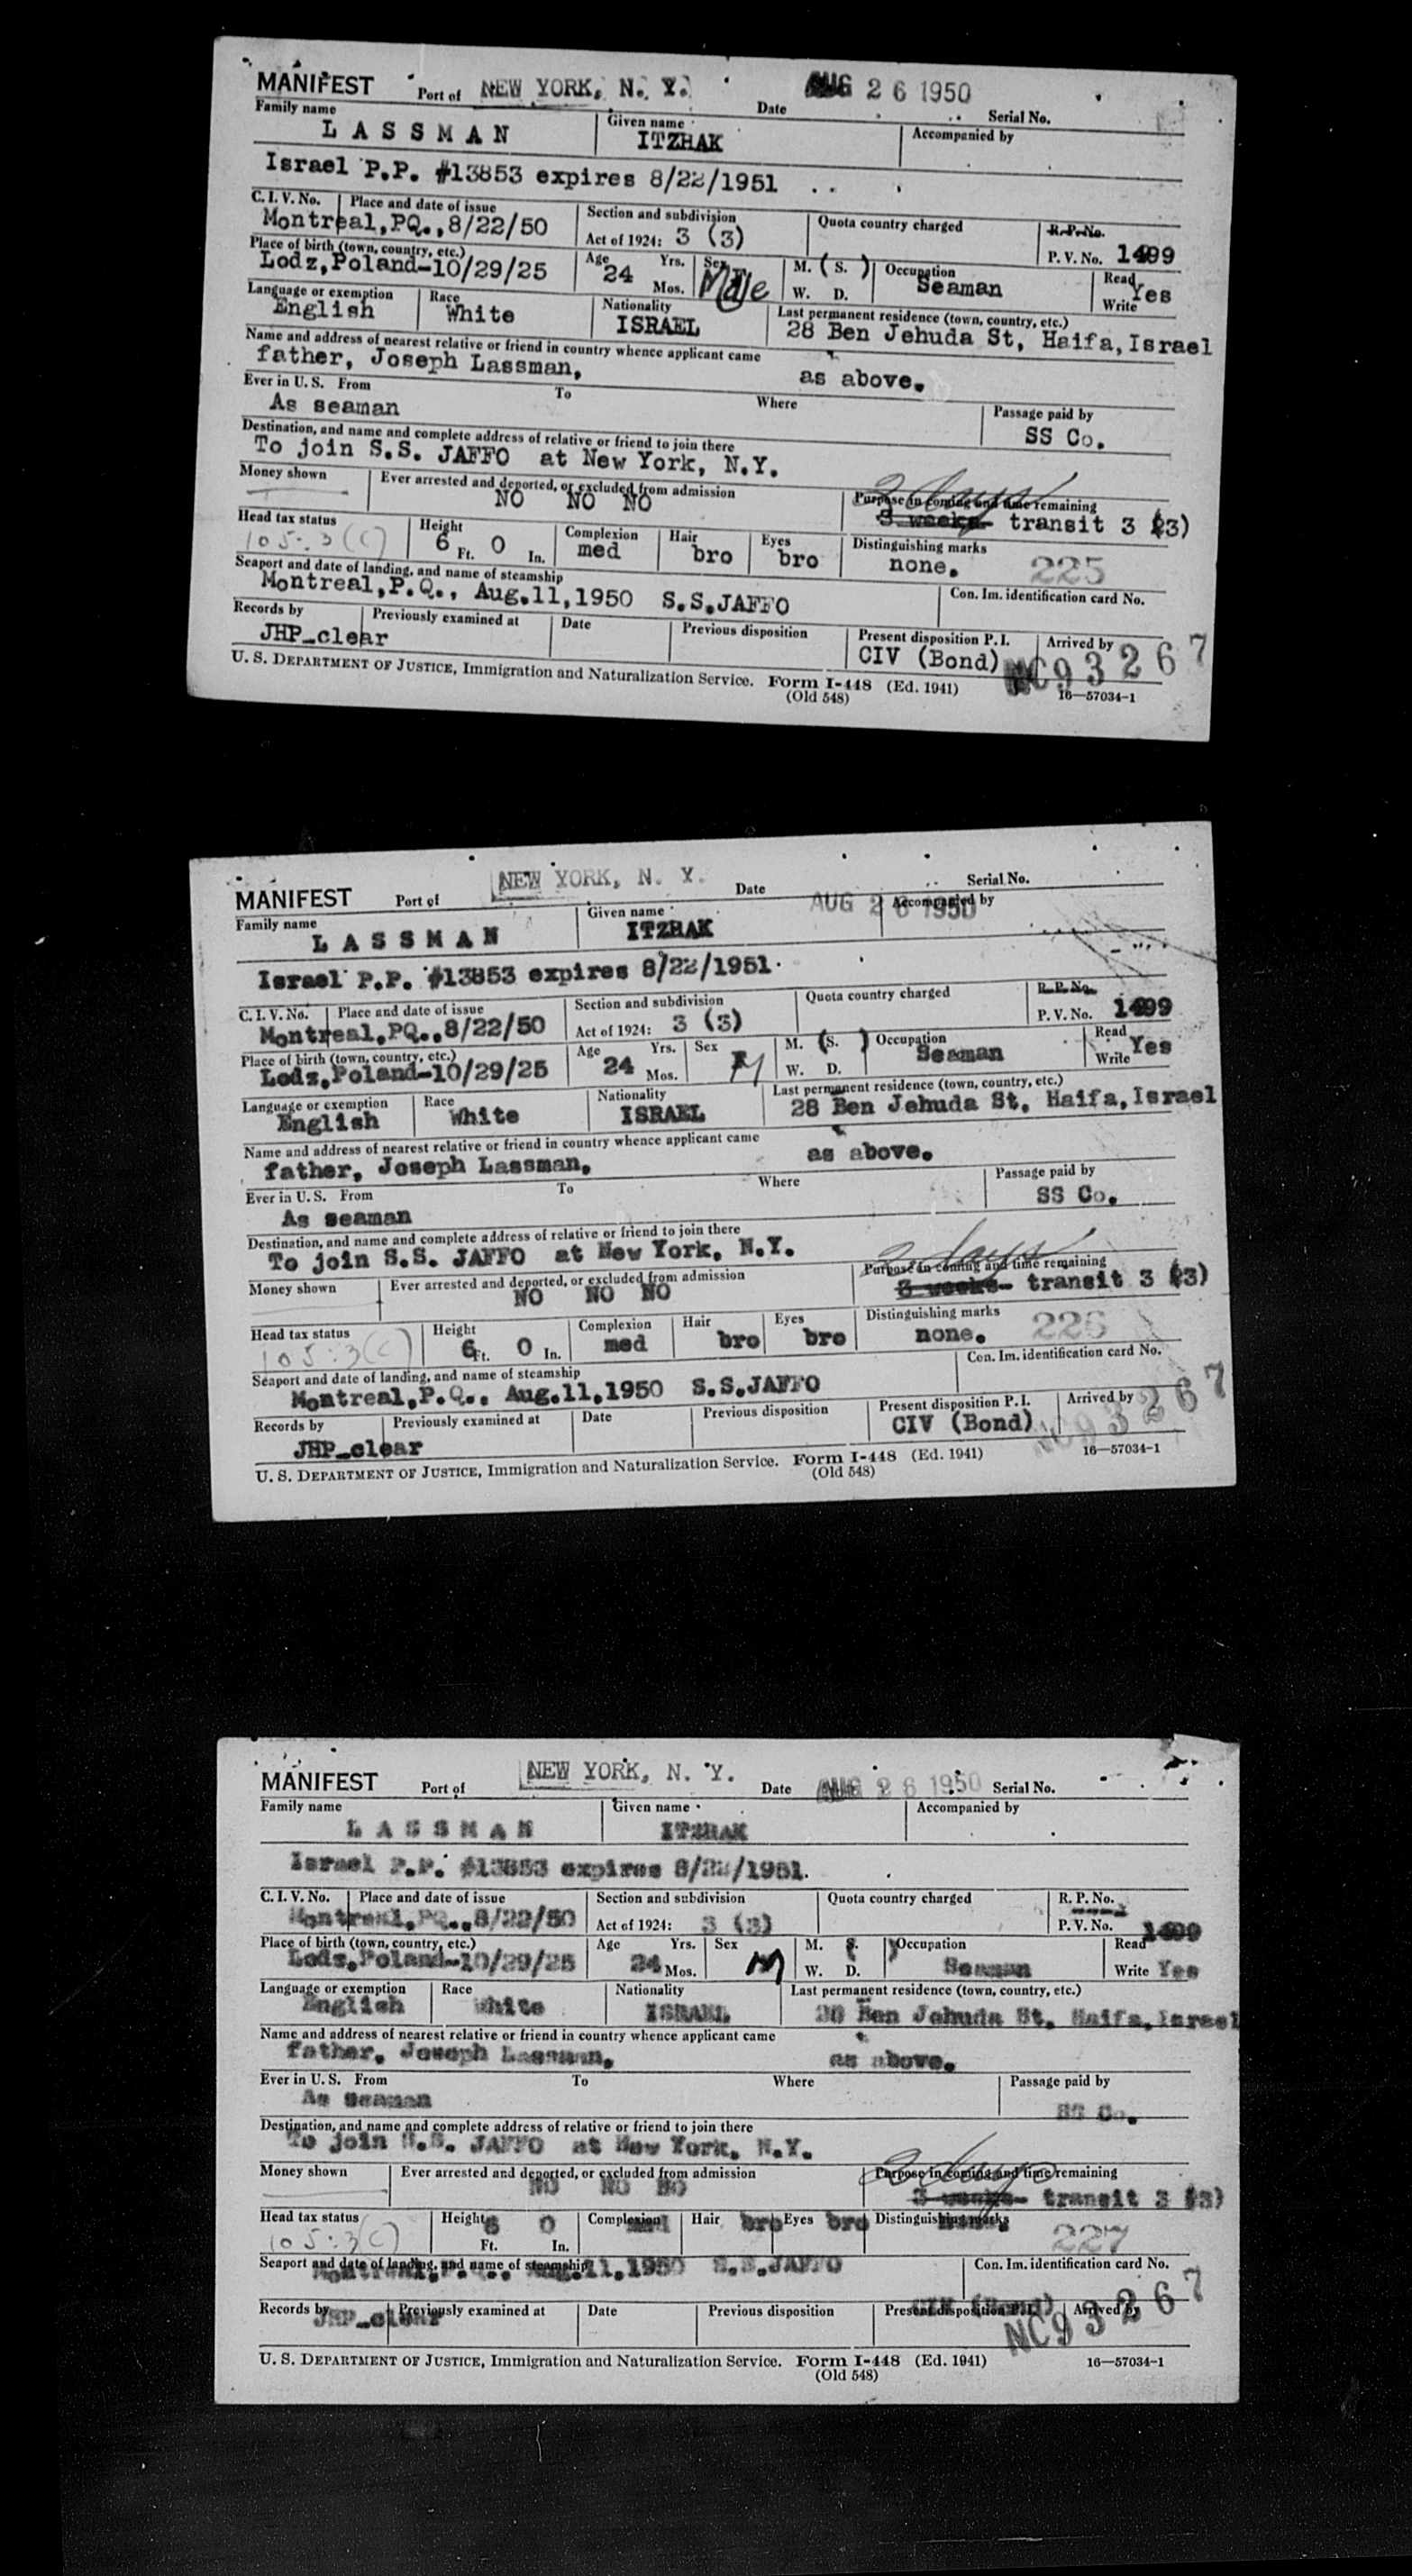 MANIFEST Port of NEW YORK, N. Y. Date AUG 26 1950 Serial No.
Family name Given name Accompanied by
LASSMAN ITZHAK
Israel P.P. #13853 expires 8/22/1951
C. I. V. No. Place and date of issue Section and subdivision Quota country charged R. P. No.
Montreal,PQ.,8/22/50 Act of 1924: 3 (3) P. V. No. 1499
Place of birth (town, country, etc.) Age Yrs. Sex M. (S.) Occupation Read
Lodz,Poland-10/29/25 24 Mos. Male W. D. Seaman Write Yes
Language or exemption Race Nationality Last permanent residence (town, country, etc.)
English White ISRAEL 28 Ben Jehuda St, Haifa,Israel
Name and address of nearest relative or friend in country whence applicant came
father, Joseph Lassman, as above.
Ever in U. S. From To Where Passage paid by
As seaman SS Co.
Destination, and name and complete address of relative or friend to join there
To join S.S. JAFFO at New York, N.Y.
Money shown Ever arrested and deported, or excluded from admission Purpose in coming and time remaining
NO NO NO 3 days 3 weeks transit 3 (3)
Head tax status Height Complexion Hair Eyes Distinguishing marks
105:3(C) 6 Ft. 0 In. med bro bro none. 225
Seaport and date of landing, and name of steamship Con. Im. identification card No.
Montreal,P.Q., Aug.11,1950 S.S.JAFFO
Records by Previously examined at Date Previous disposition Present disposition P. I. Arrived by
JHP-clear CIV (Bond) NC93267
U. S. DEPARTMENT OF JUSTICE, Immigration and Naturalization Service. Form I-448 (Ed. 1941) 16—57034-1
(Old 548)
MANIFEST Port of NEW YORK, N. Y. Date AUG 26 1950 Serial No.
Family name Given name Accompanied by
LASSMAN ITZHAK
Israel P.P. #13853 expires 8/22/1951
C. I. V. No. Place and date of issue Section and subdivision Quota country charged R. P. No.
Montreal,PQ.,8/22/50 Act of 1924: 3 (3) P. V. No. 1499
Place of birth (town, country, etc.) Age Yrs. Sex M. (S.) Occupation Read
Lodz,Poland-10/29/25 24 Mos. M W. D. Seaman Write Yes
Language or exemption Race Nationality Last permanent residence (town, country, etc.)
English White ISRAEL 28 Ben Jehuda St, Haifa,Israel
Name and address of nearest relative or friend in country whence applicant came
father, Joseph Lassman, as above.
Ever in U. S. From To Where Passage paid by
As seaman SS Co.
Destination, and name and complete address of relative or friend to join there
To join S.S. JAFFO at New York, N.Y.
Money shown Ever arrested and deported, or excluded from admission Purpose in coming and time remaining
NO NO NO 3 days 3 weeks transit 3 (3)
Head tax status Height Complexion Hair Eyes Distinguishing marks
105:3(C) 6 Ft. 0 In. med bro bro none. 226
Seaport and date of landing, and name of steamship Con. Im. identification card No.
Montreal,P.Q., Aug.11,1950 S.S.JAFFO
Records by Previously examined at Date Previous disposition Present disposition P. I. Arrived by
JHP-clear CIV (Bond) NC93267
U. S. DEPARTMENT OF JUSTICE, Immigration and Naturalization Service. Form I-448 (Ed. 1941) 16—57034-1
(Old 548)
MANIFEST Port of NEW YORK, N. Y. Date AUG 26 1950 Serial No.
Family name Given name Accompanied by
LASSMAN ITZHAK
Israel P.P. #13853 expires 8/22/1951.
C. I. V. No. Place and date of issue Section and subdivision Quota country charged R. P. No.
Montreal,PQ.,8/22/50 Act of 1924: 3 (3) P. V. No. 1499
Place of birth (town, country, etc.) Age Yrs. Sex M. (S.) Occupation Read
Lodz,Poland-10/29/25 24 Mos. M W. D. Seaman Write Yes
Language or exemption Race Nationality Last permanent residence (town, country, etc.)
English White ISRAEL 28 Ben Jehuda St, Haifa,Israel
Name and address of nearest relative or friend in country whence applicant came
father, Joseph Lassman, as above.
Ever in U. S. From To Where Passage paid by
As seaman SS Co.
Destination, and name and complete address of relative or friend to join there
To join S.S. JAFFO at New York, N.Y.
Money shown Ever arrested and deported, or excluded from admission Purpose in coming and time remaining
NO NO NO 3 days 3 weeks transit 3 (3)
Head tax status Height 6 0 Complexion med Hair bro Eyes bro Distinguishing marks none.
105:3(C) Ft. In. 227
Seaport and date of landing, and name of steamship Con. Im. identification card No.
Montreal,P.Q., Aug.11,1950 S.S.JAFFO
Records by Previously examined at Date Previous disposition Present disposition P. I. Arrived by
JHP-clear CIV (Bond) NC93267
U. S. DEPARTMENT OF JUSTICE, Immigration and Naturalization Service. Form I-448 (Ed. 1941) 16—57034-1
(Old 548)